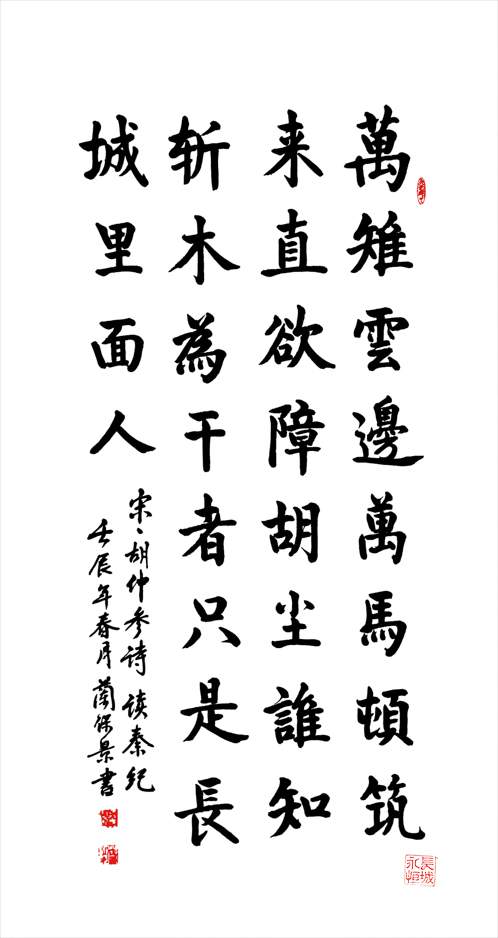 萬雉雲邊萬馬頓筑
来直欲障胡尘誰知
斩木為干者只是長
城里面人
宋、胡仲参诗读秦纪
壬辰年春月蘭保景書
長城
永恒